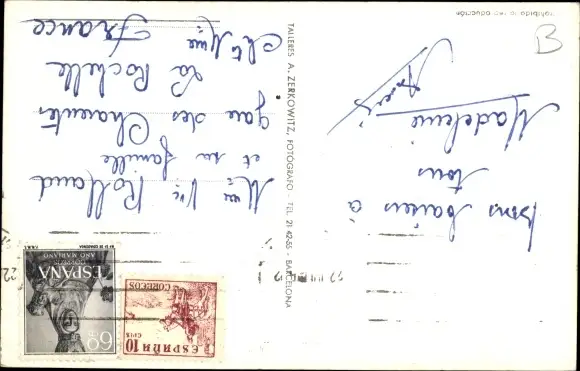 Bons baisers à
tous
Madeleine
Prohibida la reproducción
TALLERES A. ZERKOWITZ, FOTÓGRAFO - TEL. 21-42-55 - BARCELONA
Mme Vve Rolland
et sa famille
quai des Charentes
La Rochelle
Chte Mme
France
ESPAÑA
CORREOS
AÑO MARIANO
ESPAÑA 10 CTS
CORREOS
22
B